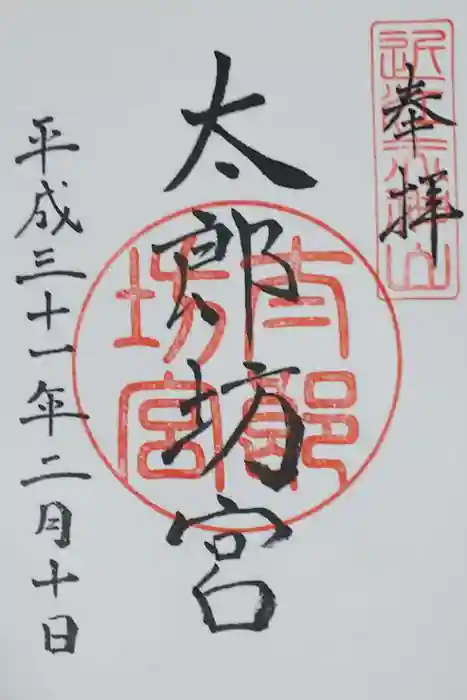 奉拝
太郎坊宮
太郎
坊宮
平成三十一年二月十日